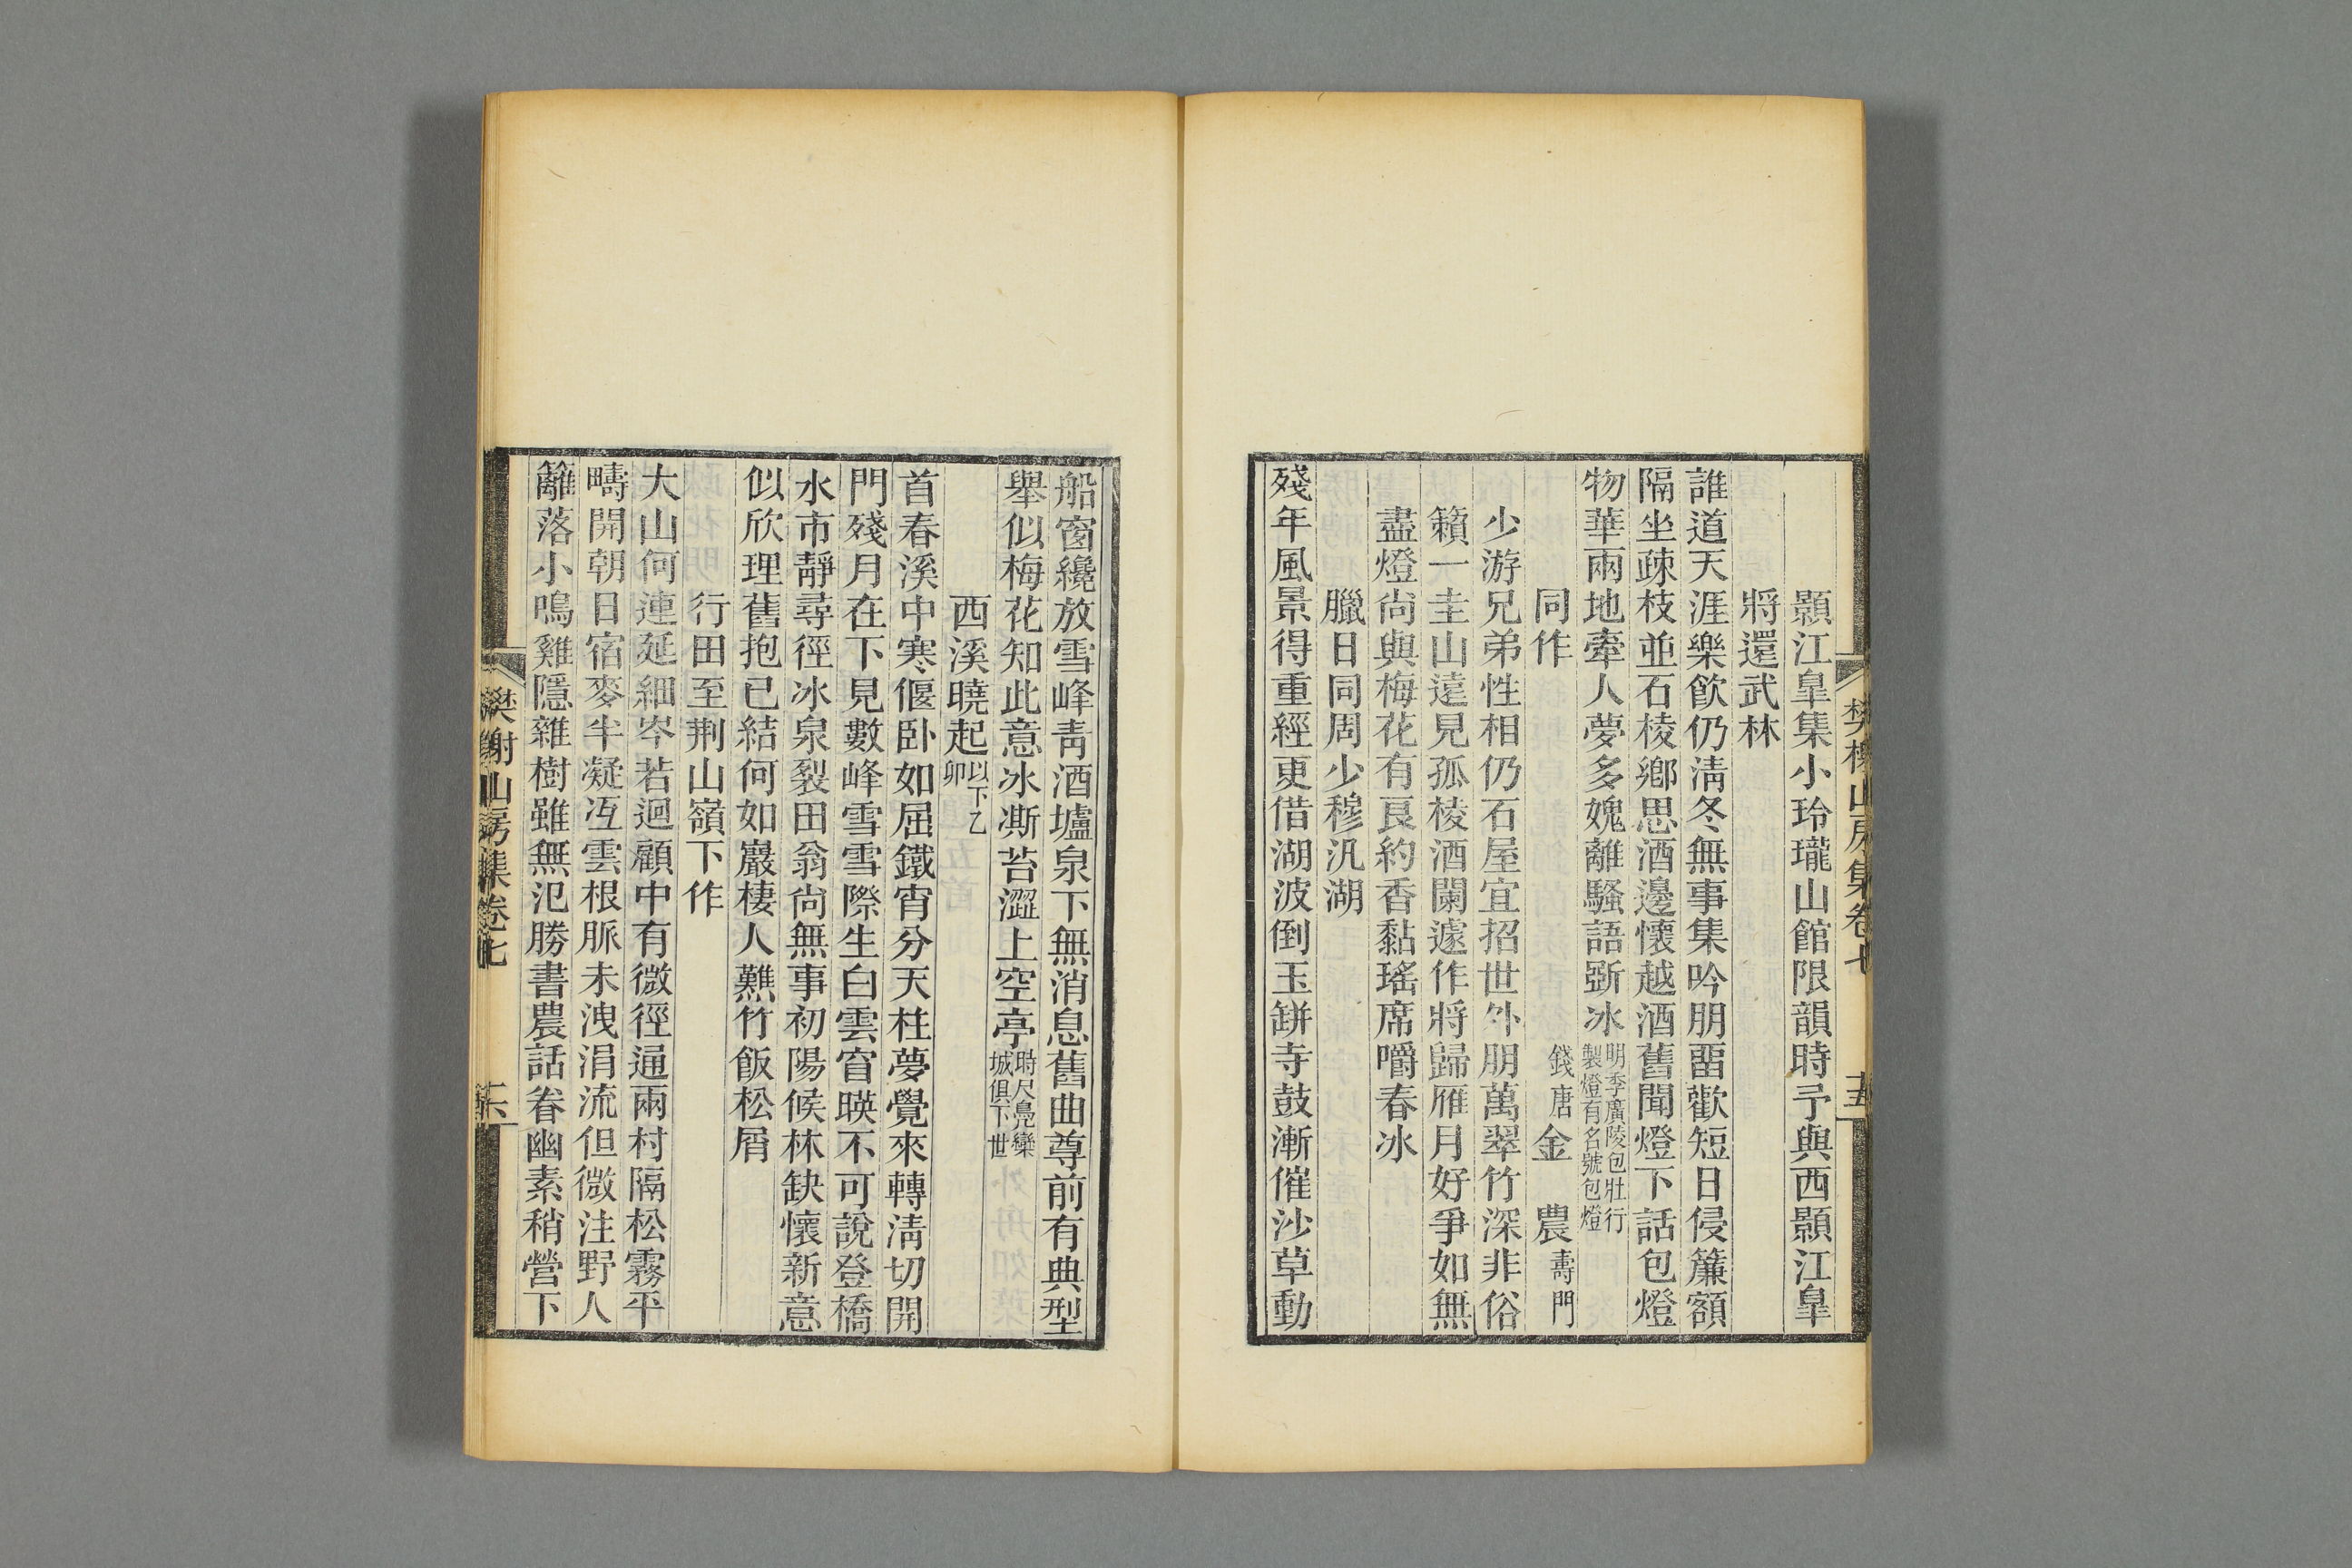 顥江臯集小玲瓏山館限韻時予與西顥江臯
將還武林
誰道天涯樂飮仍淸冬無事集吟朋畱歡短日侵簾額
隔坐疎枝並石棱鄕思酒邊懷越酒舊聞燈下話包燈
物華兩地牽人夢多媿離騷語斲冰明季廣陵包壯行製燈有名號包燈
同作 錢唐金 農壽門
少游兄弟性相仍石屋宜招世外朋萬翠竹深非俗
籟一圭山遠見孤棱酒闌遽作將歸雁月好爭如無
盡燈尙與梅花有良約香黏瑤席嚼春冰
臘日同周少穆汎湖
殘年風景得重經更借湖波倒玉缾寺鼓漸催沙草動
船窗纔放雪峰靑酒壚泉下無消息舊曲尊前有典型
舉似梅花知此意冰澌苔澀上空亭時尺鳧欒城俱下世
西溪曉起以下乙卯
首春溪中寒偃卧如屈鐵宵分天柱夢覺來轉淸切開
門殘月在下見數峰雪雪際生白雲窅暎不可說登橋
水市靜尋徑冰泉裂田翁尙無事初陽候林缺懷新意
似欣理舊抱已結何如巖棲人爇竹飯松屑
行田至荆山嶺下作
大山何連延細岑若迴顧中有微徑通兩村隔松霧平
疇開朝日宿麥半凝冱雲根脈未洩涓流但微注野人
籬落小鳴雞隱雜樹雖無氾勝書農話眷幽素稍營下
樊榭山房集卷七